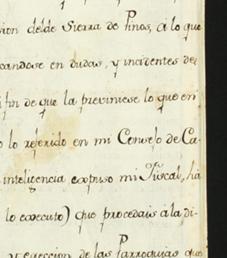 sion desde Sierra de Pinos, à lo que
candose en dudas, y incidentes de
à fin de que la previniese lo que en
o lo referido en mi Consejo de Ca-
intelicencia expuso mi Fiscal, hà
lo executo) que procedais à la di-
y ereccion de las Parroquias que